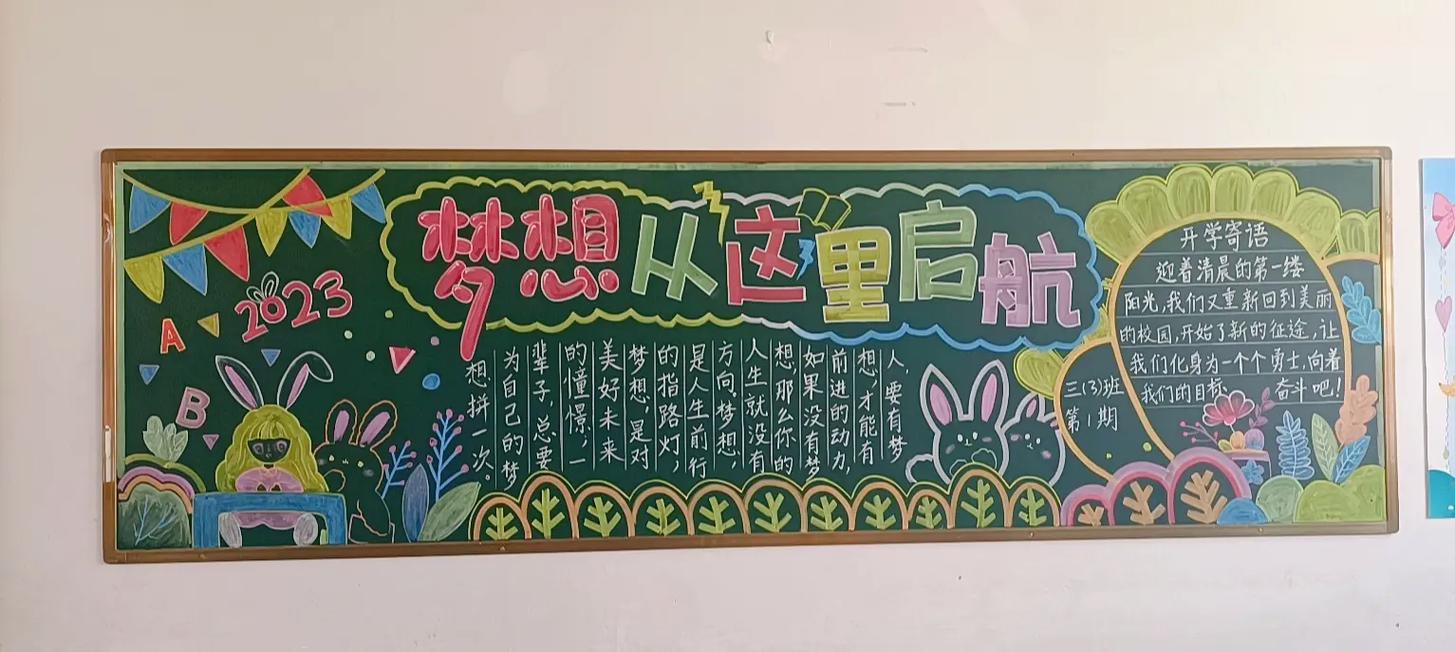 梦想从这里启航
2023
A
B
人，要有梦
想，才能有
前进的动力，
如果没有梦
想，那么你的
人生就没有
方向。梦想，
是人生前行
的指路灯，
梦想，是对
美好未来
的憧憬，一
辈子，总要
为自己的梦
想，拼一次。
开学寄语
迎着清晨的第一缕
阳光，我们又重新回到美丽
的校园，开始了新的征途，让
我们化身为一个个勇士，向着
我们的目标，奋斗吧！
三(3)班
第1期